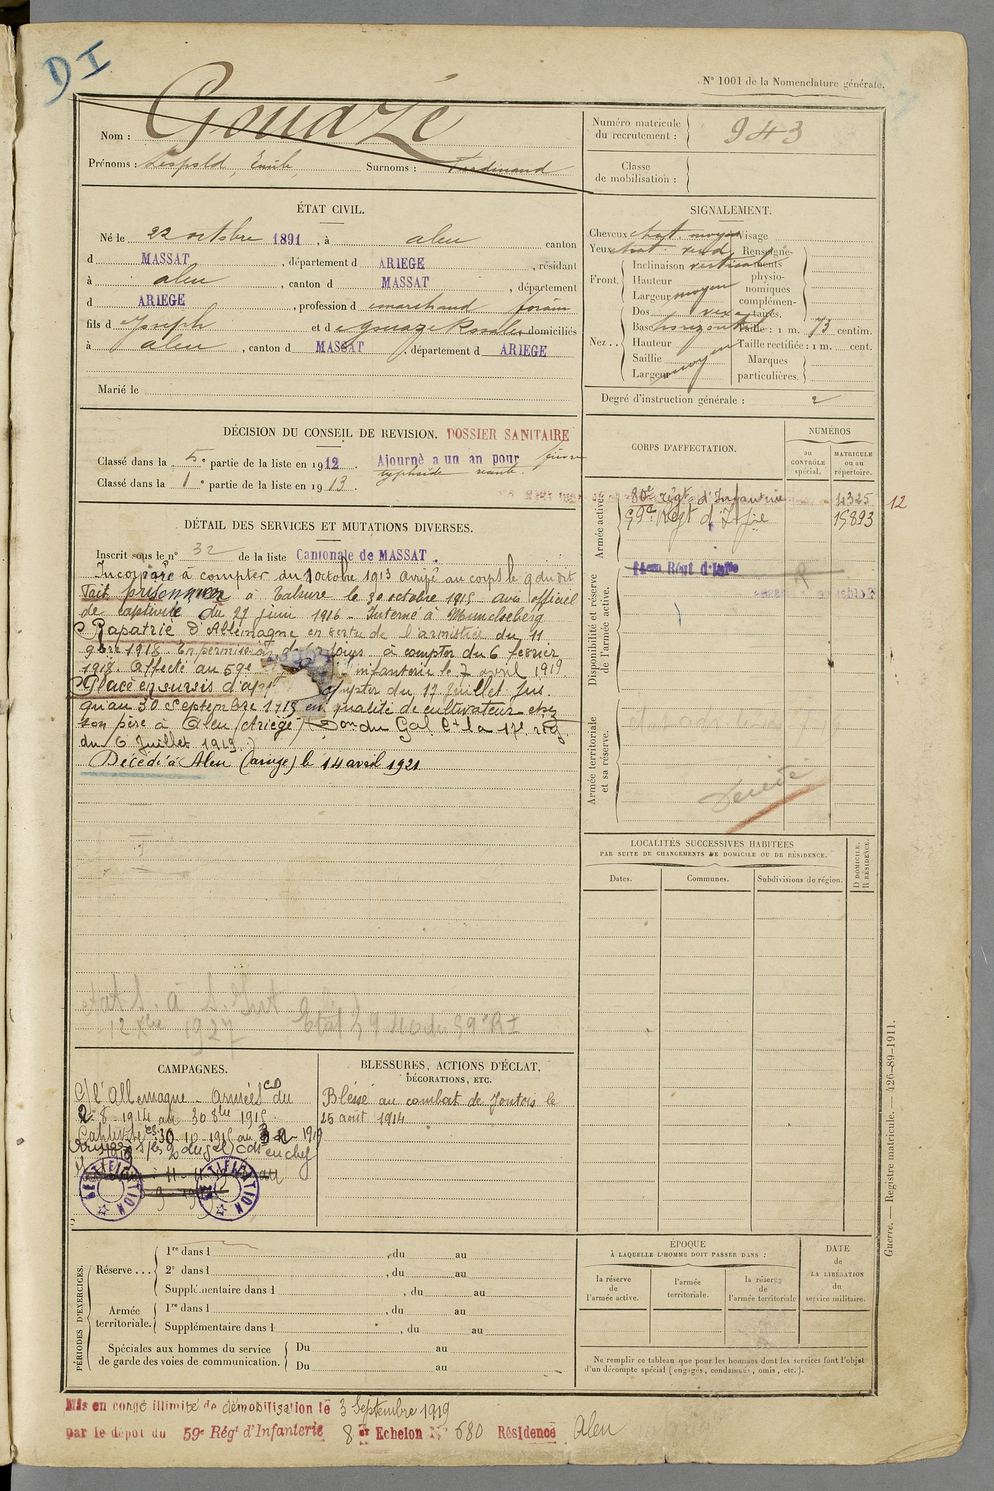 DI
N° 1001 de la Nomenclature générale.
Nom : Gouazé
Prénoms : Léopold, Emile, Surnoms : Ferdinand
Numéro matricule du recrutement : 943
Classe de mobilisation :
ÉTAT CIVIL.
Né le 22 octobre 1891, à aleu canton
d MASSAT, département d ARIEGE, résidant
à aleu, canton d MASSAT, département
d ARIEGE, profession d marchand forain
fils d Joseph et d Gouaze Rosalie domiciliés
à aleu, canton d MASSAT, département d ARIEGE
Marié le
SIGNALEMENT.
Cheveux chat. moyen Visage
Yeux chat. Renseignements physionomiques complémentaires.
Front. Inclinaison verticale
Hauteur
Largeur moyen
Nez .. Dos vexe
Base horizontale Taille : 1 m. 73 centim.
Hauteur Taille rectifiée : 1 m. cent.
Saillie Marques particulières.
Largeur moyen
Degré d'instruction générale : 2
DÉCISION DU CONSEIL DE REVISION. DOSSIER SANITAIRE
Classé dans la 5e partie de la liste en 1912. Ajourné a un an pour fièvre
typhoïde
Classé dans la 1e partie de la liste en 1913.
CORPS D'AFFECTATION.
NUMÉROS
AU CONTRÔLE spécial.
MATRICULE ou au répertoire.
Armée active.
80e régt d'Infanterie 4325 12
59e Régt d'Infie 15893
Disponibilité et réserve de l'armée active.
Régt d'Inffie
R
Armée territoriale et sa réserve.
Décédé
DÉTAIL DES SERVICES ET MUTATIONS DIVERSES.
Inscrit sous le n° 32 de la liste Cantonale de MASSAT.
Incorporé à compter du 1 octobre 1913 arrivé au corps le 9 du dit
Fait prisonnier à Tahure le 30 octobre 1915 avis officiel
de captivité du 27 juin 1916 - Interné à
Rapatrié d'Allemagne en vertu de l'armistice du 11
9bre 1918. En permission de jours à compter du 6 fevrier
1919. Affecté au 59e infanterie le 7 avril 1919
Placé en sursis d'ap compter du 17 Juillet Jus.
qu'au 30 Septembre 1919 en qualité de cultivateur chez
son père à Aleu (Ariège) Don du Gal Ct la 17e rég.
du 6 Juillet 1919.
Décédé à Aleu (ariège) le 14 avril 1921
12 Xbre 1927 59e RI
LOCALITÉS SUCCESSIVES HABITÉES
PAR SUITE DE CHANGEMENTS DE DOMICILE OU DE RÉSIDENCE.
Dates. Communes. Subdivisions de région. D DOMICILE. R RÉSIDENCE.
CAMPAGNES.
C/ l'Allemagne - Armées du
2-8-1914 au 30 8bre 1915
Captivité 30-10-1915 au
RECTIFICATION
RECTIFICATION
BLESSURES, ACTIONS D'ÉCLAT,
DÉCORATIONS, ETC.
Blessé au combat de le
25 août 1914
Guerre. — Registre matricule. — 426-89-1911.
PÉRIODES D'EXERCICES.
Réserve ... 1re dans l , du au
2e dans l , du au
Supplémentaire dans l , du au
Armée territoriale. 1re dans l , du au
Supplémentaire dans l , du au
Spéciales aux hommes du service de garde des voies de communication. Du au
Du au
ÉPOQUE
À LAQUELLE L'HOMME DOIT PASSER DANS :
la réserve de l'armée active.
l'armée territoriale.
la réserve de l'armée territoriale
DATE de LA LIBÉRATION du service militaire.
Ne remplir ce tableau que pour les hommes dont les services font l'objet
d'un décompte spécial (engagés, condamnés, omis, etc.).
Mis en congé illimité de démobilisation le 3 Septembre 1919
par le dépôt du 59e Régt d'Infanterie 8e Echelon N° 680 Résidence Aleu